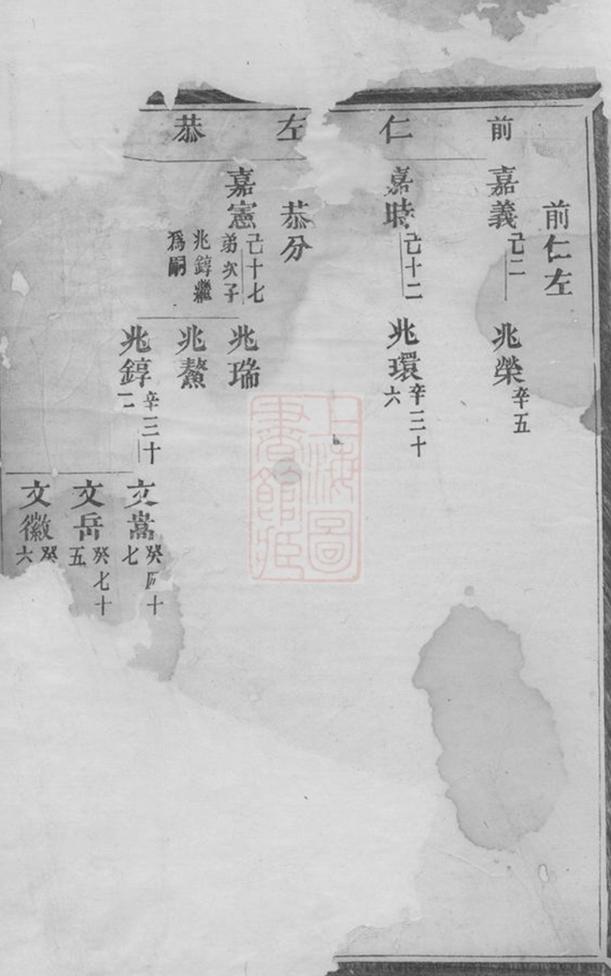 前　仁　左　恭
前仁左
嘉義 己二
兆榮 辛五
嘉時 己十二
兆環 辛三十六
恭分
嘉憲 己十七 弟次子兆錞繼爲嗣
兆瑞
兆鰲
兆錞 辛三十二
文嵩 癸四十七
文岳 癸七十五
文徽 癸 六
上海圖書館藏